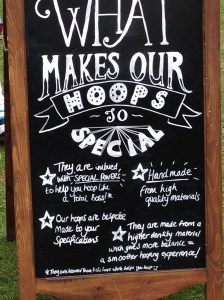 WHAT
MAKES OUR
HOOPS
SO
SPECIAL
They are imbued
with SPECIAL POWERS
to help you hoop like
a total boss!
Handmade
from high
quality materials
Our hoops are bespoke
Made to your
Specifications
They are made from a
higher density material
which gives more balance =
a smoother hooping experience!